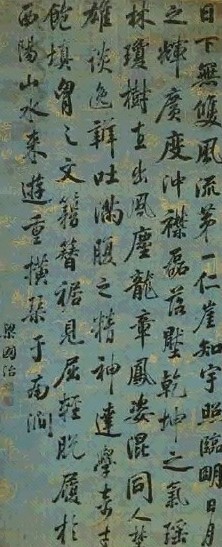 日下無雙風流第一仁崖知宇照臨明日月
之輝廣度沖襟磊落壓乾坤之氣瑤
林瓊樹直出風塵龍章鳳姿混同人埜
雄談逸辯吐滿腹之精神達學奇才
飽填胷之文籍簪裾見屈輕脫履於
西陽山水來遊重橫琴于南澗
梁國治